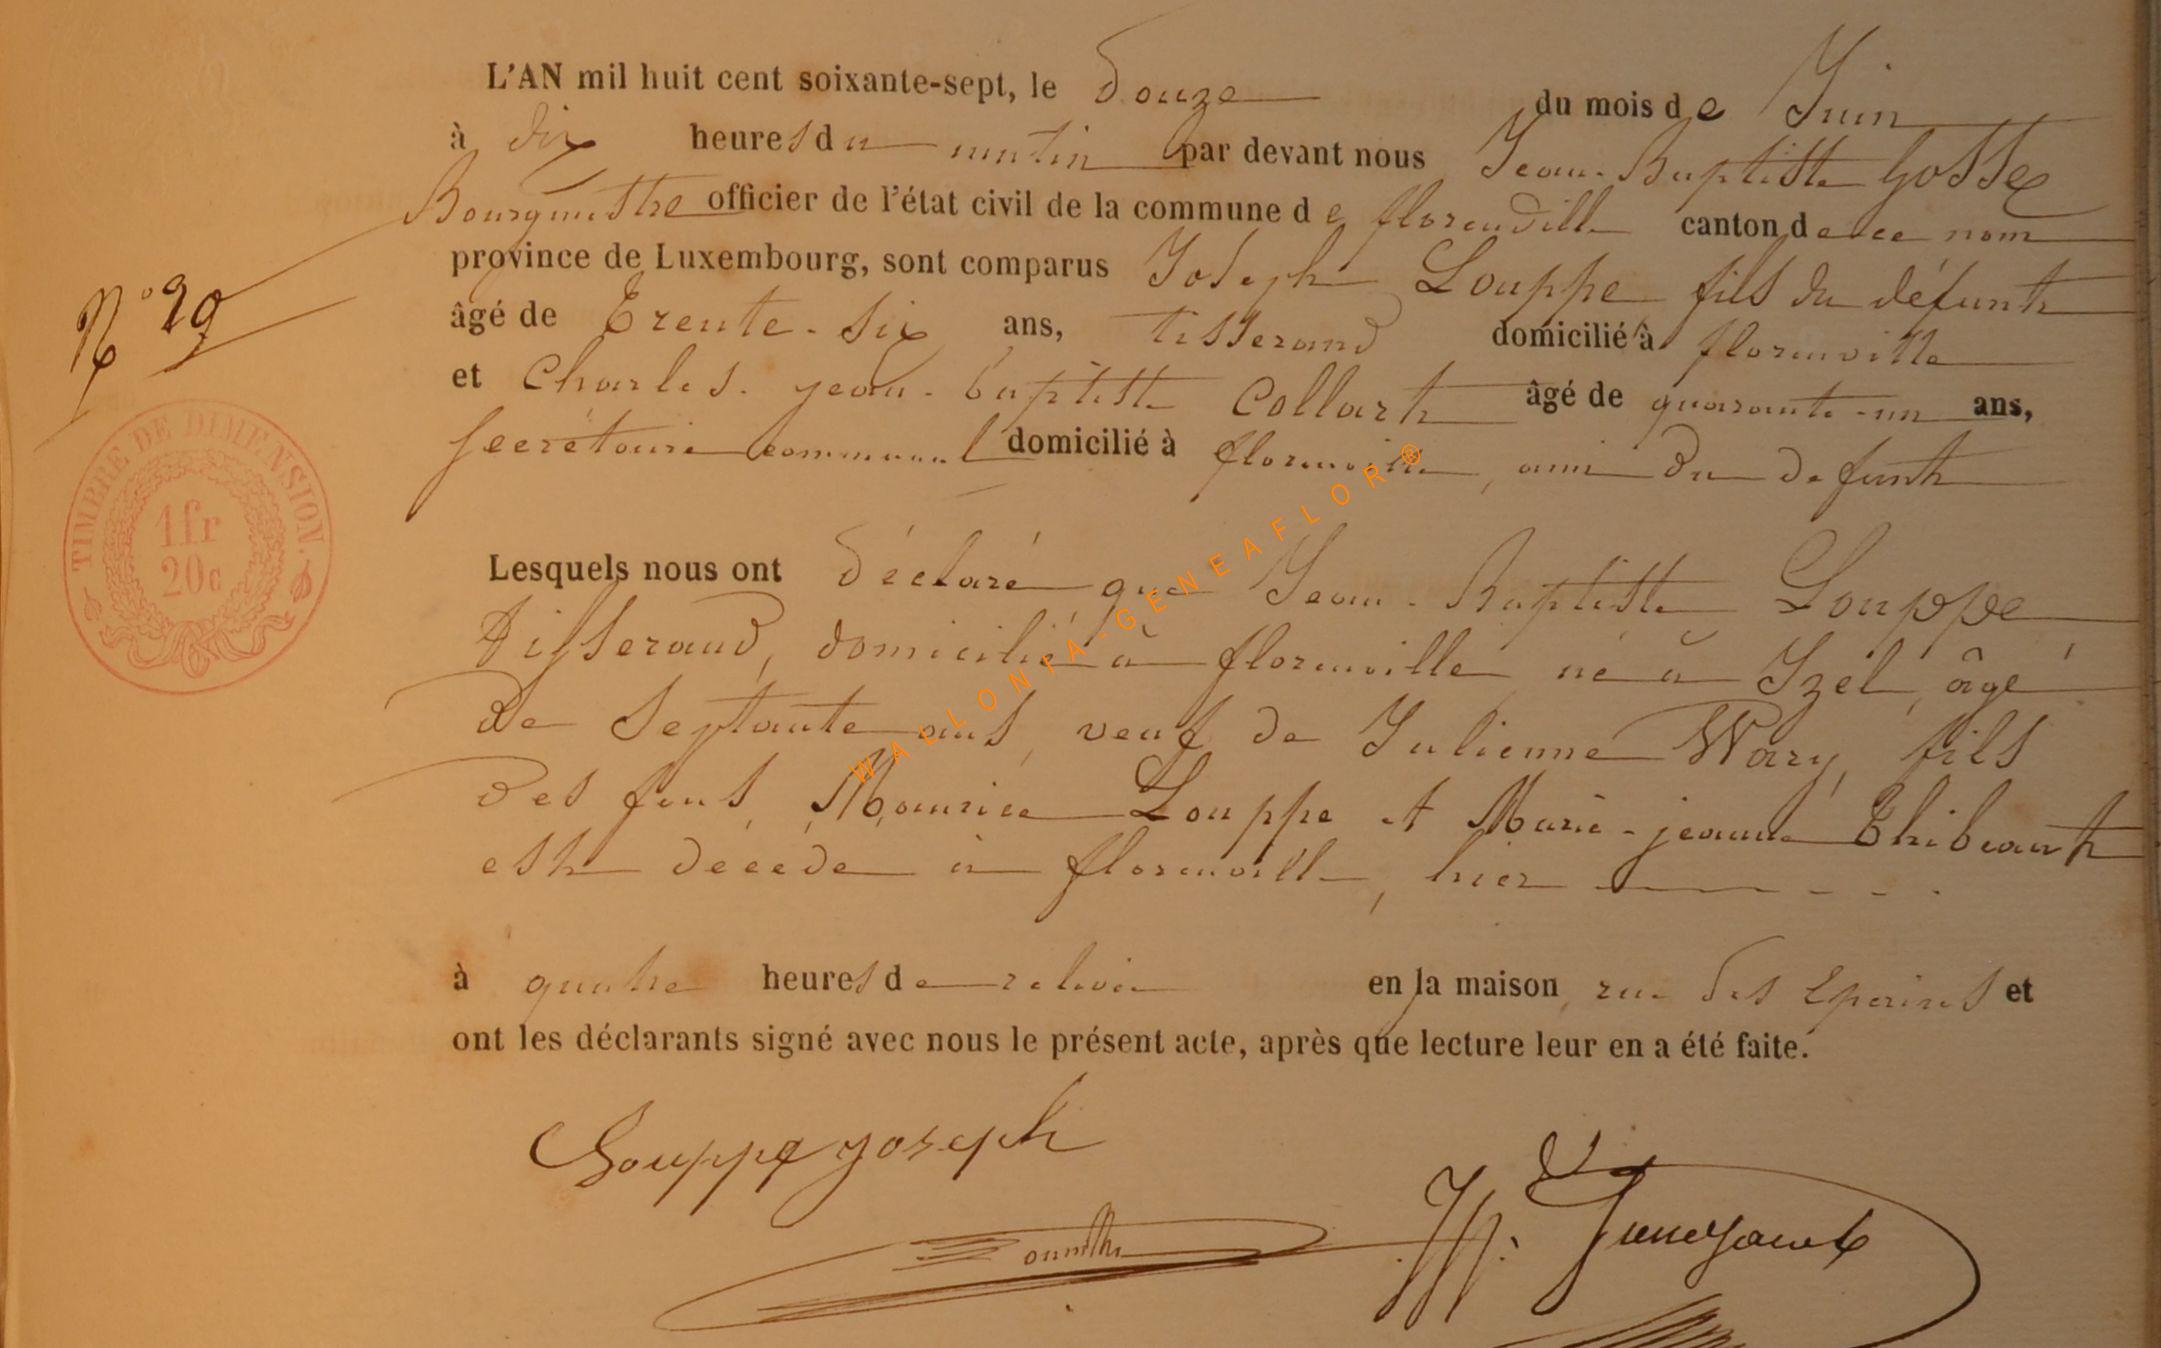 L'AN mil huit cent soixante-sept, le Douze du mois de Juin
à dix heures du matin par devant nous Jean-Baptiste Gosse
Bourgmestre officier de l'état civil de la commune de florenville canton de ce nom
province de Luxembourg, sont comparus Joseph Louppe fils du défunt
N° 29
âgé de Trente-six ans, tisserand domicilié à florenville
et Charles-jean-baptiste Collart âgé de quarante-un ans,
secrétaire communal domicilié à florenville, ami du defunt
TIMBRE DE DIMENSION.
1fr
20c
Lesquels nous ont déclaré que Jean-Baptiste Louppe
tisserand, domicilié à florenville né à Izel, âgé
de septante ans, veuf de Julienne Wary, fils
des feus, Maurice Louppe et Marie-jeanne Thibeaut
est décédé à florenville, hier
à quatre heures de relevée en la maison, rue des Epeires et
ont les déclarants signé avec nous le présent acte, après que lecture leur en a été faite.
Louppe joseph
WALLONIA-GENEAFLOR®